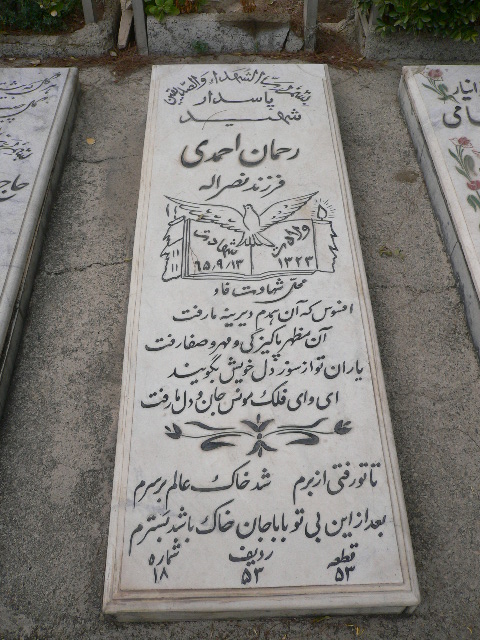 بسم رب الشهداء و الصدیقین
پاسدار
شهید
رحمان احمدی
فرزند نصراله
ولادت
۱۳۲۳
شهادت
۶۵/۹/۱۳
محل شهادت فاو
افسوس که آن همدم دیرینه ما رفت
آن مظهر پاکیزگی و مهر و صفا رفت
یاران تو از سوز دل خویش بگویند
ای وای فلک مونس جان و دل ما رفت
تا تو رفتی از برم شد خاک عالم بر سرم
بعد از این بی تو بابا جان خاک باشد بسترم
قطعه ردیف شماره
۵۳ ۵۳ ۱۸
حاج